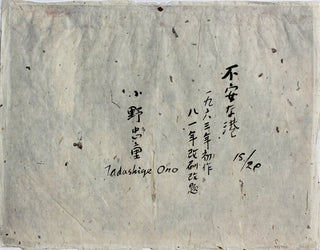 不安な港
一九六三年初作
八一年改刷改題
15/20
小野忠重
Tadashige Ono